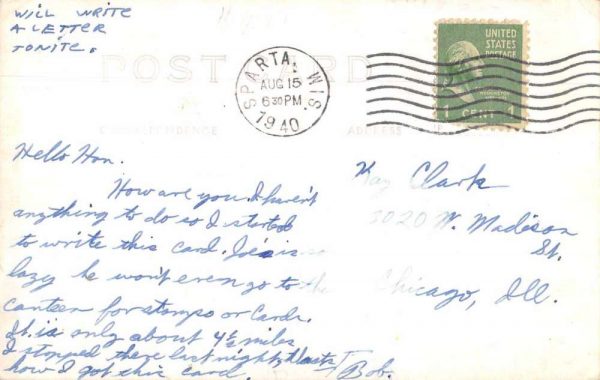 WILL WRITE
A LETTER
TONITE.
POST CARD
SPARTA, WIS.
AUG 15
6 30 PM
1940
UNITED
STATES
POSTAGE
1 CENT 1
CORRESPONDENCE
ADDRESS
Hello Hon.
How are you. I haven't
anything to do so I started
to write this card. Joe is so
lazy he won't even go to the
canteen for stamps or cards.
It is only about 4½ miles
I stopped there last night, thats
how I got this card.
Bob.
Kay Clark
3020 W. Madison
St.
Chicago, Ill.